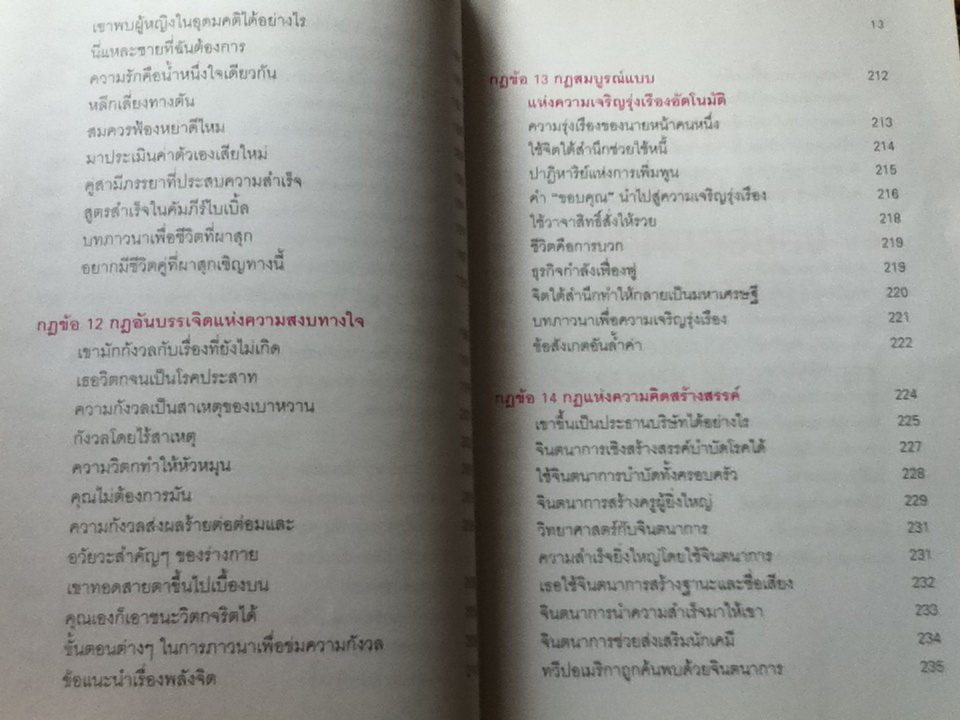 เขาพบผู้หญิงในอุดมคติได้อย่างไร
นี่แหละชายที่ฉันต้องการ
ความรักคือน้ำหนึ่งใจเดียวกัน
หลีกเลี่ยงทางตัน
สมควรฟ้องหย่าดีไหม
มาประเมินค่าตัวเองเสียใหม่
คู่สามีภรรยาที่ประสบความสำเร็จ
สูตรสำเร็จในคัมภีร์ไบเบิ้ล
บทภาวนาเพื่อชีวิตที่ผาสุก
อยากมีชีวิตคู่ที่ผาสุกเชิญทางนี้
กฎข้อ 12 กฎอันบรรเจิดแห่งความสงบทางใจ
เขามักกังวลกับเรื่องที่ยังไม่เกิด
เธอวิตกจนเป็นโรคประสาท
ความกังวลเป็นสาเหตุของเบาหวาน
กังวลโดยไร้สาเหตุ
ความวิตกทำให้หัวหมุน
คุณไม่ต้องการมัน
ความกังวลส่งผลร้ายต่อต่อมและ
อวัยวะสำคัญๆ ของร่างกาย
เขาทอดสายตาขึ้นไปเบื้องบน
คุณเองก็เอาชนะวิตกจริตได้
ขั้นตอนต่างๆ ในการภาวนาเพื่อข่มความกังวล
ข้อแนะนำเรื่องพลังจิต
13
กฎข้อ 13 กฎสมบูรณ์แบบ 212
แห่งความเจริญรุ่งเรืองอัตโนมัติ
ความรุ่งเรืองของนายหน้าคนหนึ่ง 213
ใช้จิตใต้สำนึกช่วยใช้หนี้ 214
ปาฏิหาริย์แห่งการเพิ่มพูน 215
คำ "ขอบคุณ" นำไปสู่ความเจริญรุ่งเรือง 216
ใช้วาจาสิทธิ์สั่งให้รวย 218
ชีวิตคือการบวก 219
ธุรกิจกำลังเฟื่องฟู 219
จิตใต้สำนึกทำให้กลายเป็นมหาเศรษฐี 220
บทภาวนาเพื่อความเจริญรุ่งเรือง 221
ข้อสังเกตอันล้ำค่า 222
กฎข้อ 14 กฎแห่งความคิดสร้างสรรค์ 224
เขาขึ้นเป็นประธานบริษัทได้อย่างไร 225
จินตนาการเชิงสร้างสรรค์บำบัดโรคได้ 227
ใช้จินตนาการบำบัดทั้งครอบครัว 228
จินตนาการสร้างครูผู้ยิ่งใหญ่ 229
วิทยาศาสตร์กับจินตนาการ 231
ความสำเร็จยิ่งใหญ่โดยใช้จินตนาการ 231
เธอใช้จินตนาการสร้างฐานะและชื่อเสียง 232
จินตนาการนำความสำเร็จมาให้เขา 233
จินตนาการช่วยส่งเสริมนักเคมี 234
ทวีปอเมริกาถูกค้นพบด้วยจินตนาการ 235